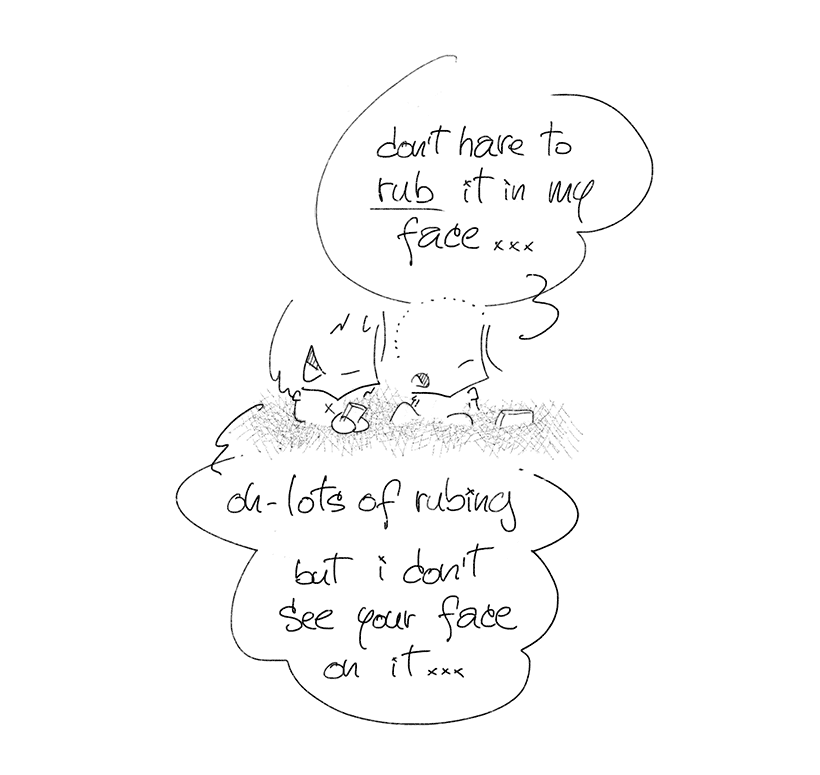 don't have to
rub it in my
face xxx
oh-lots of rubing
but i don't
see your face
on it xxx